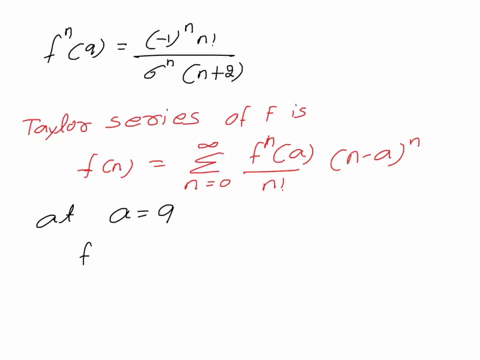 fⁿ(9) = (-1)ⁿ n! / 6ⁿ (n+2)
Taylor series of f is
f(n) = ∞ Σ n=0 fⁿ(a) / n! (n-a)ⁿ
at a = 9
f